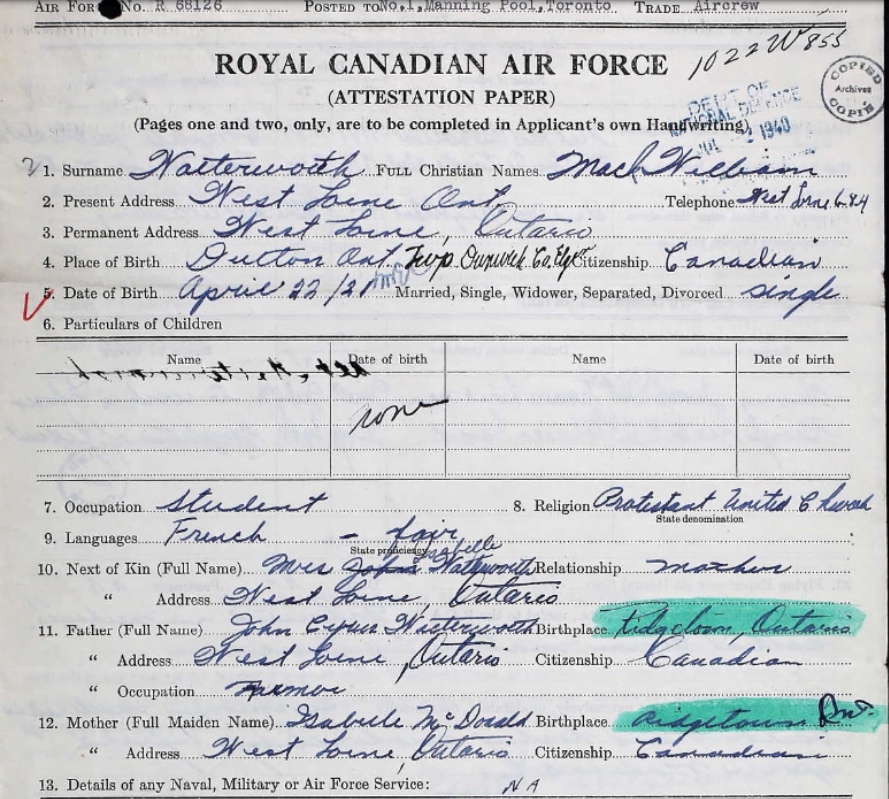 AIR FORCE No. R 68126 POSTED TO No.1, Manning Pool, Toronto TRADE Aircrew
1022 W 855
ROYAL CANADIAN AIR FORCE
(ATTESTATION PAPER)
(Pages one and two, only, are to be completed in Applicant's own Handwriting)
DEPT OF
NATIONAL DEFENCE
1940
COPIED
Archives
COPIÉ
1. Surname Watterworth FULL Christian Names Mack William
2. Present Address West Lorne Ont. Telephone West Lorne
3. Permanent Address West Lorne, Ontario
4. Place of Birth Dutton Ont. Twp Dunwich Co. Elgin Citizenship Canadian
5. Date of Birth April 22 /21 Married, Single, Widower, Separated, Divorced single
6. Particulars of Children
Name Date of birth Name Date of birth
none
7. Occupation Student 8. Religion Protestant United Church
State denomination
9. Languages French - fair
State proficiency
10. Next of Kin (Full Name) Mrs John Isabelle Watterworth Relationship mother
" Address West Lorne, Ontario
11. Father (Full Name) John Cyrus Watterworth Birthplace Ridgetown, Ontario
" Address West Lorne, Ontario Citizenship Canadian
" Occupation Farmer
12. Mother (Full Maiden Name) Isabelle McDonald Birthplace Ridgetown Ont.
" Address West Lorne, Ontario Citizenship Canadian
13. Details of any Naval, Military or Air Force Service: NA